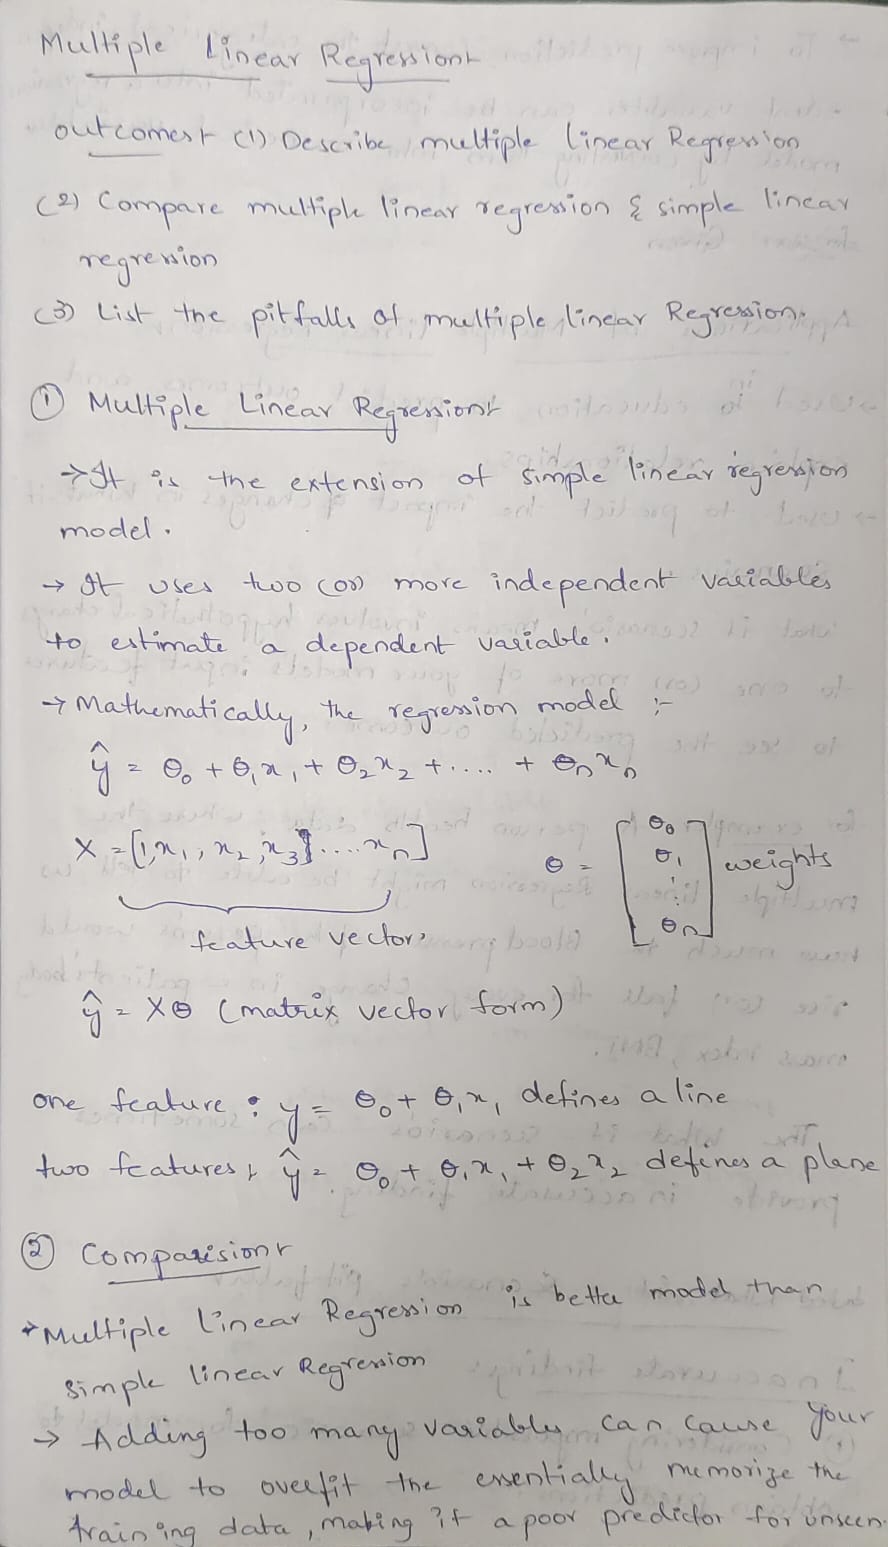 Multiple Linear Regression:-
outcomes:- (1) Describe multiple linear Regression
(2) Compare multiple linear regression & simple linear
regression
(3) List the pitfalls of multiple linear Regression.
① Multiple Linear Regression:-
→ It is the extension of simple linear regression
model.
→ It uses two (or) more independent variables
to estimate a dependent variable.
→ Mathematically, the regression model :-
ŷ = θ₀ + θ₁x₁ + θ₂x₂ + .... + θₙxₙ
X = [1, x₁, x₂, x₃ .... xₙ] θ = [θ₀ θ₁ ⋮ θₙ] weights
feature vector
ŷ = Xθ (matrix vector form)
one feature : y = θ₀ + θ₁x₁ defines a line
two features :- ŷ = θ₀ + θ₁x₁ + θ₂x₂ defines a plane
② Comparision:-
→ Multiple linear Regression is better model than
simple linear Regression
→ Adding too many variables can cause your
model to overfit the essentially memorize the
training data, making it a poor predictor for unseen